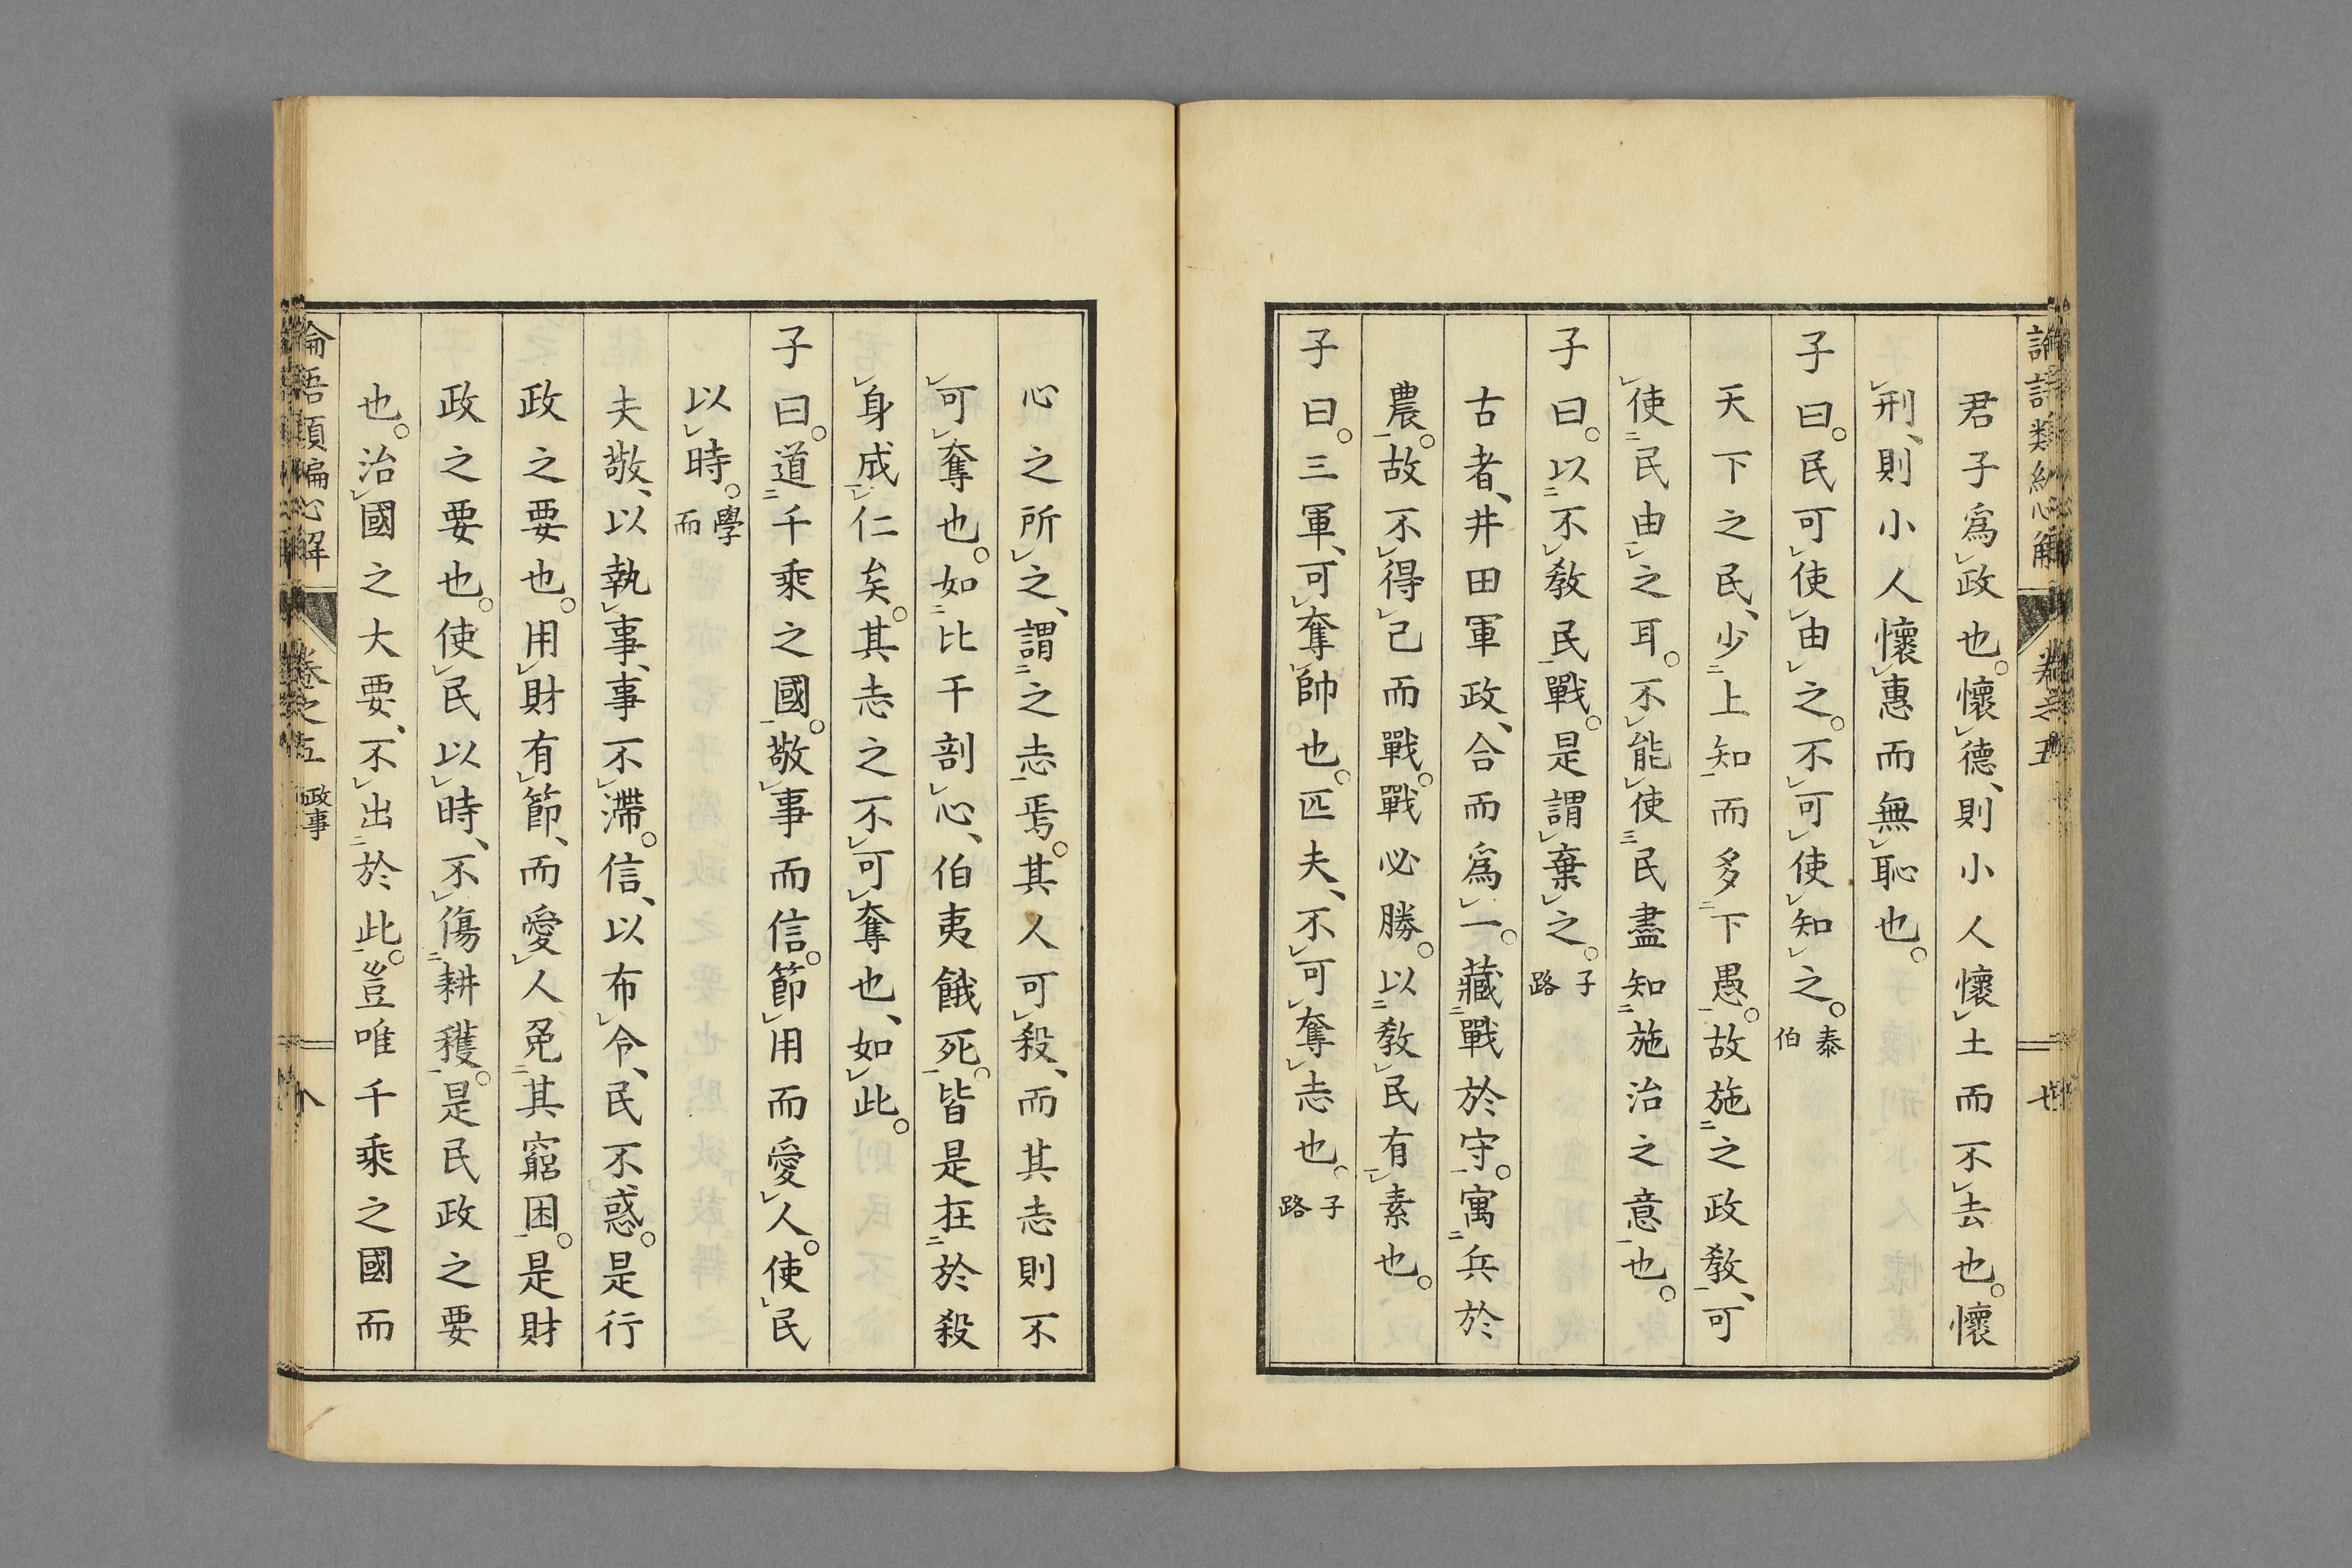 君子爲政也。懷德、則小人懷土而不去也。懷
刑、則小人懷惠而無恥也。
子曰。民可使由之。不可使知之。泰伯
天下之民、少上知而多下愚。故施之政教、可
使民由之耳。不能使民盡知施治之意也。
子曰。以不教民戰。是謂棄之。子路
古者、井田軍政、合而爲一。藏戰於守。寓兵於
農。故不得已而戰。戰必勝。以教民有素也。
子曰。三軍、可奪帥也。匹夫、不可奪志也。子路
心之所之、謂之志焉。其人可殺、而其志則不
可奪也。如比干剖心、伯夷餓死。皆是在於殺
身成仁矣。其志之不可奪也、如此。
子曰。道千乘之國。敬事而信。節用而愛人。使民
以時。學而
夫敬、以執事、事不滯。信、以布令、民不惑。是行
政之要也。用財有節、而愛人免其窮困。是財
政之要也。使民以時、不傷耕穫。是民政之要
也。治國之大要、不出於此。豈唯千乘之國而
論語類編心解 卷之五 政事 八